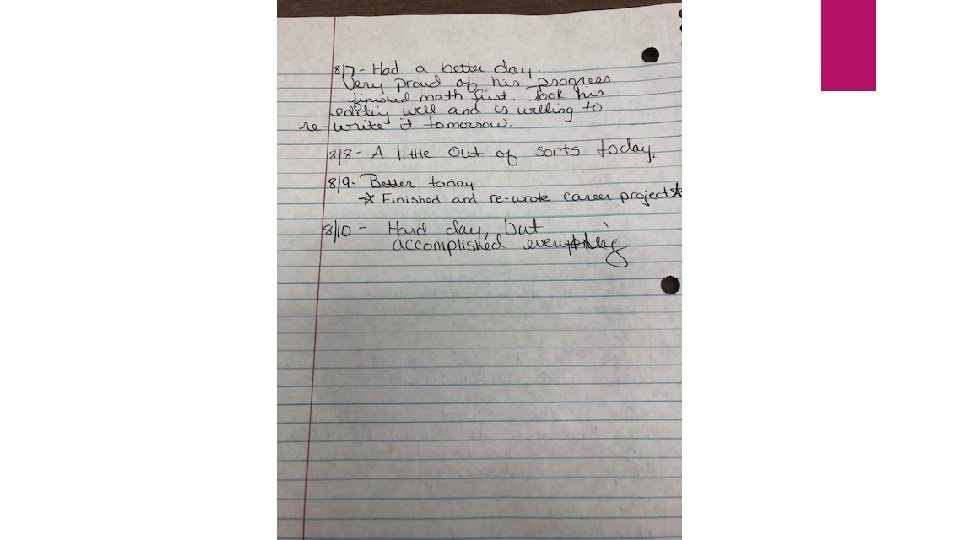 8/7 - Had a better day.
Very proud of his progress
finished math first. Took his
editing well and is willing to
re write it tomorrow.
8/8 - A little out of sorts today.
8/9 - Better today
☆ Finished and re-wrote career project☆
8/10 - Hard day, but
accomplished everything